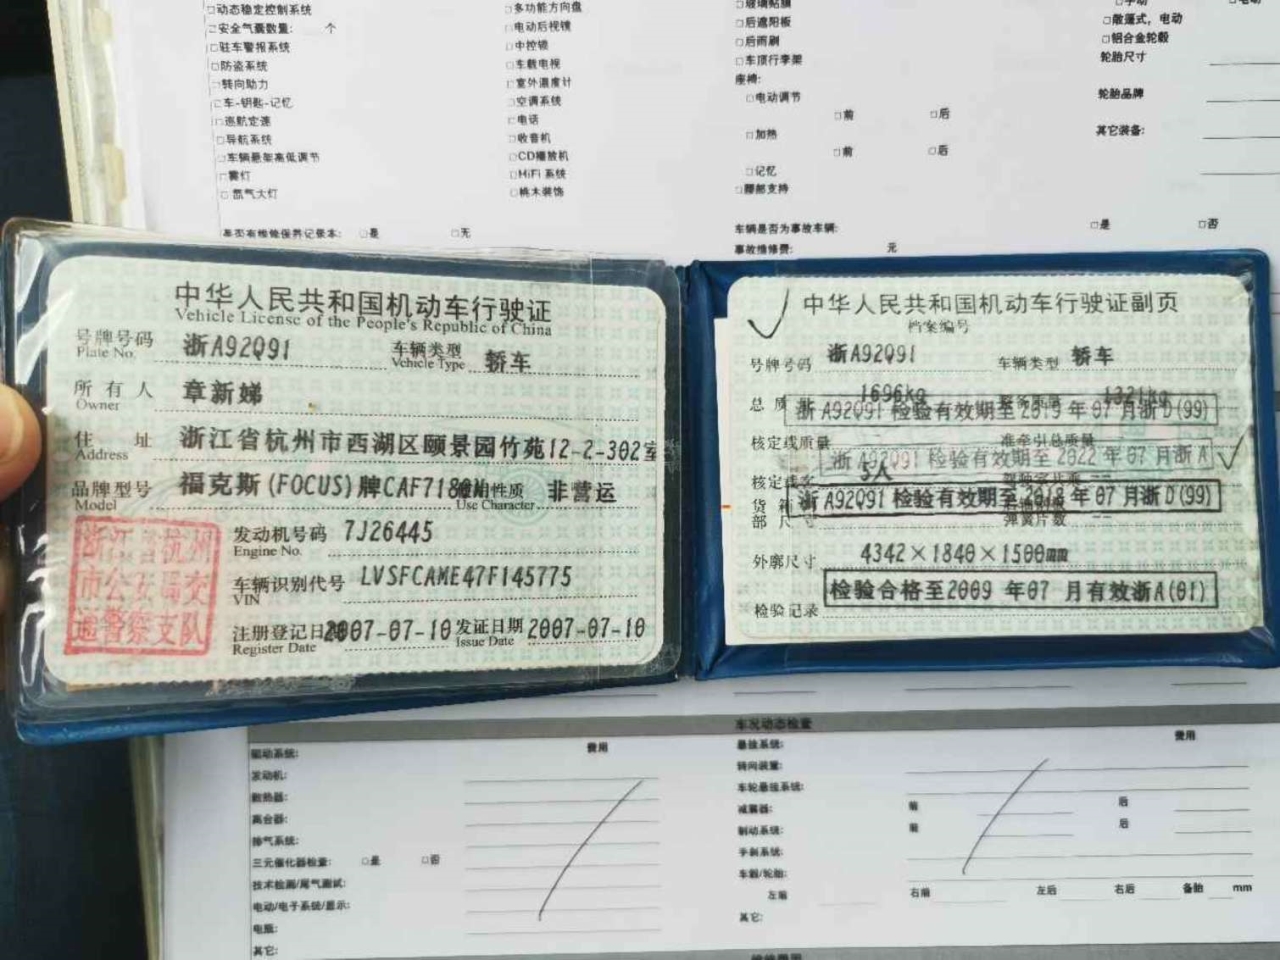 □动态稳定控制系统
□安全气囊数量: 个
□驻车警报系统
□防盗系统
□转向助力
□车-钥匙-记忆
□巡航定速
□导航系统
□车辆悬架高低调节
□雾灯
□氙气大灯
□多功能方向盘
□电动后视镜
□中控锁
□车载电视
□室外温度计
□空调系统
□电话
□收音机
□CD播放机
□HiFi 系统
□桃木装饰
□后遮阳板
□后雨刷
□车顶行李架
座椅:
□电动调节
□前 □后
□加热
□前 □后
□记忆
□腰部支持
□敞篷式,电动
□铝合金轮毂
轮胎尺寸
轮胎品牌
其它装备:
是否有维修保养记录本: □是 □无
车辆是否为事故车辆: □是 □否
事故维修费: 元
中华人民共和国机动车行驶证
Vehicle License of the People's Republic of China
号牌号码 浙A92Q91 车辆类型 轿车
Plate No. Vehicle Type
所有人 章新娣
Owner
住址 浙江省杭州市西湖区颐景园竹苑12-2-302室
Address
品牌型号 福克斯(FOCUS)牌CAF7180M 使用性质 非营运
Model Use Character
浙江省杭州
市公安局交
通警察支队
发动机号码 7J26445
Engine No.
车辆识别代号 LVSFCAME47F145775
VIN
注册登记日期 2007-07-10 发证日期 2007-07-10
Register Date Issue Date
中华人民共和国机动车行驶证副页
档案编号
号牌号码 浙A92Q91 车辆类型 轿车
总质量 1696kg 1321kg
浙A92Q91 检验有效期至2019年07月浙D(99)
核定载质量 准牵引总质量
浙A92Q91 检验有效期至2022年07月浙A
5人
浙A92Q91 检验有效期至2018年07月浙D(99)
弹簧片数 --
外廓尺寸 4342×1840×1500mm
检验合格至2009年07月有效浙A(01)
检验记录
车况动态检查
驱动系统: 费用
发动机:
散热器:
离合器:
排气系统:
三元催化器检查: □是 □否
技术检测/尾气测试:
电动/电子系统/显示:
电瓶:
其它:
悬挂系统: 费用
转向装置:
车轮悬挂系统:
减震器: 前 后
制动系统: 前 后
手刹系统:
车毂/轮胎:
左前 右前 左后 右后 备胎 mm
其它: